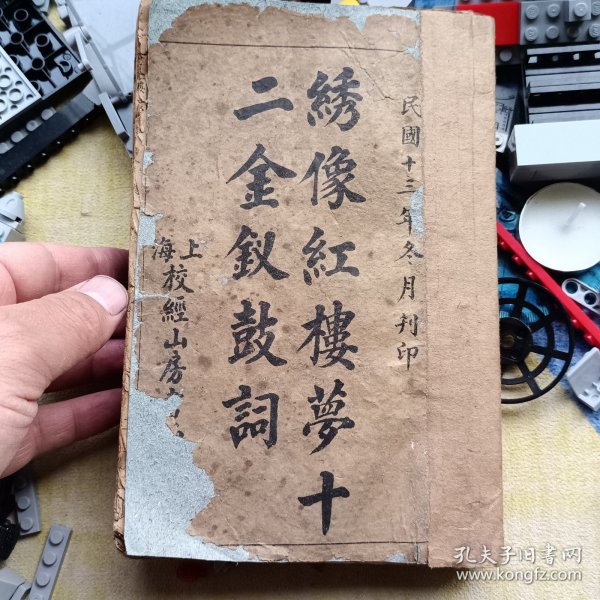 民國十三年冬月刊印
綉像紅樓夢十
二金釵鼓詞
上海校經山房
孔夫子旧书网
www.kongfz.com